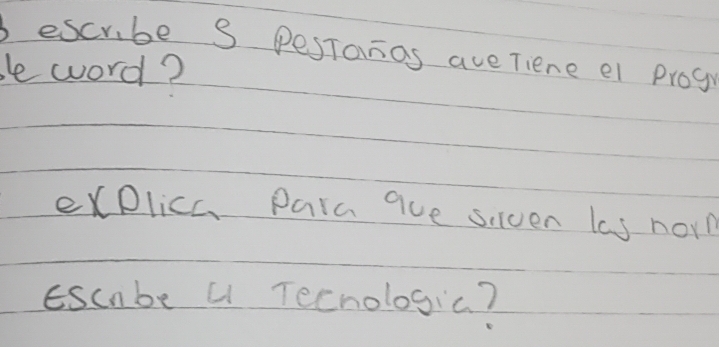 escribe 5 Pestañas que Tiene el Progr
de word?
explica Para que sirven las norm
Escribe 4 Tecnologia?